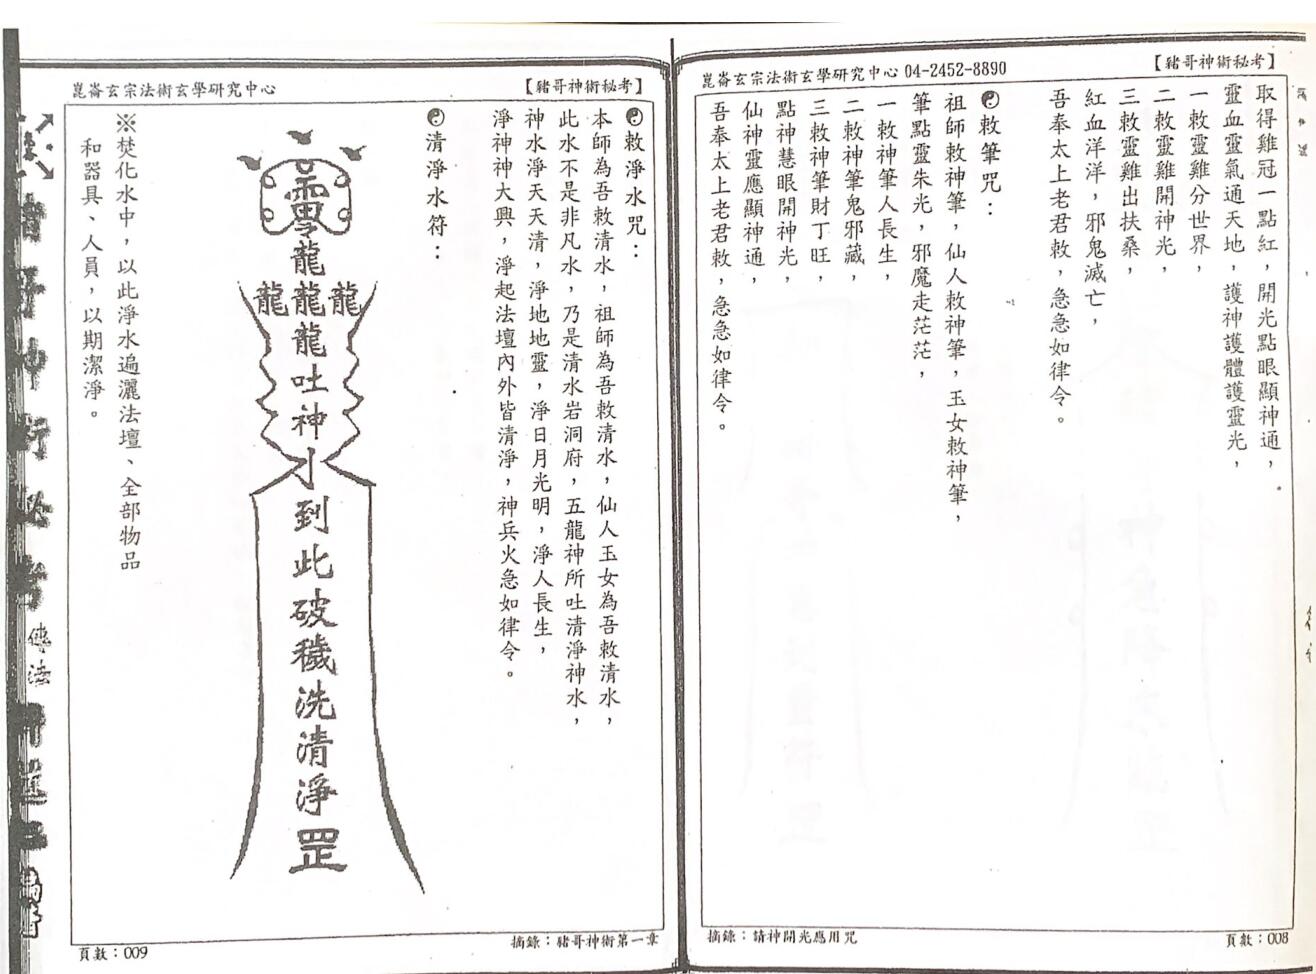 【豬哥神術秘考】
崑崙玄宗法術玄學研究中心 04-2452-8890
取得雞冠一點紅，開光點眼顯神通，
靈血靈氣通天地，護神護體護靈光，
一敕靈雞分世界，
二敕靈雞開神光，
三敕靈雞出扶桑，
紅血洋洋，邪鬼滅亡，
吾奉太上老君敕，急急如律令。
☯敕筆咒：
祖師敕神筆，仙人敕神筆，玉女敕神筆，
筆點靈朱光，邪魔走茫茫，
一敕神筆人長生，
二敕神筆鬼邪藏，
三敕神筆財丁旺，
點神慧眼開神光，
仙神靈應顯神通，
吾奉太上老君敕，急急如律令。
摘錄：請神開光應用咒
頁數：008
【豬哥神術秘考】
崑崙玄宗法術玄學研究中心
☯敕淨水咒：
本師為吾敕清水，祖師為吾敕清水，仙人玉女為吾敕清水，
此水不是非凡水，乃是清水岩洞府，五龍神所吐清淨神水，
神水淨天天清，淨地地靈，淨日月光明，淨人長生，
淨神神大興，淨起法壇內外皆清淨，神兵火急如律令。
☯清淨水符：
靈
龍
龍龍龍
龍
吐神水到此破穢洗清淨罡
※焚化水中，以此淨水遍灑法壇、全部物品
和器具、人員，以期潔淨。
摘錄：豬哥神術第一章
頁數：009